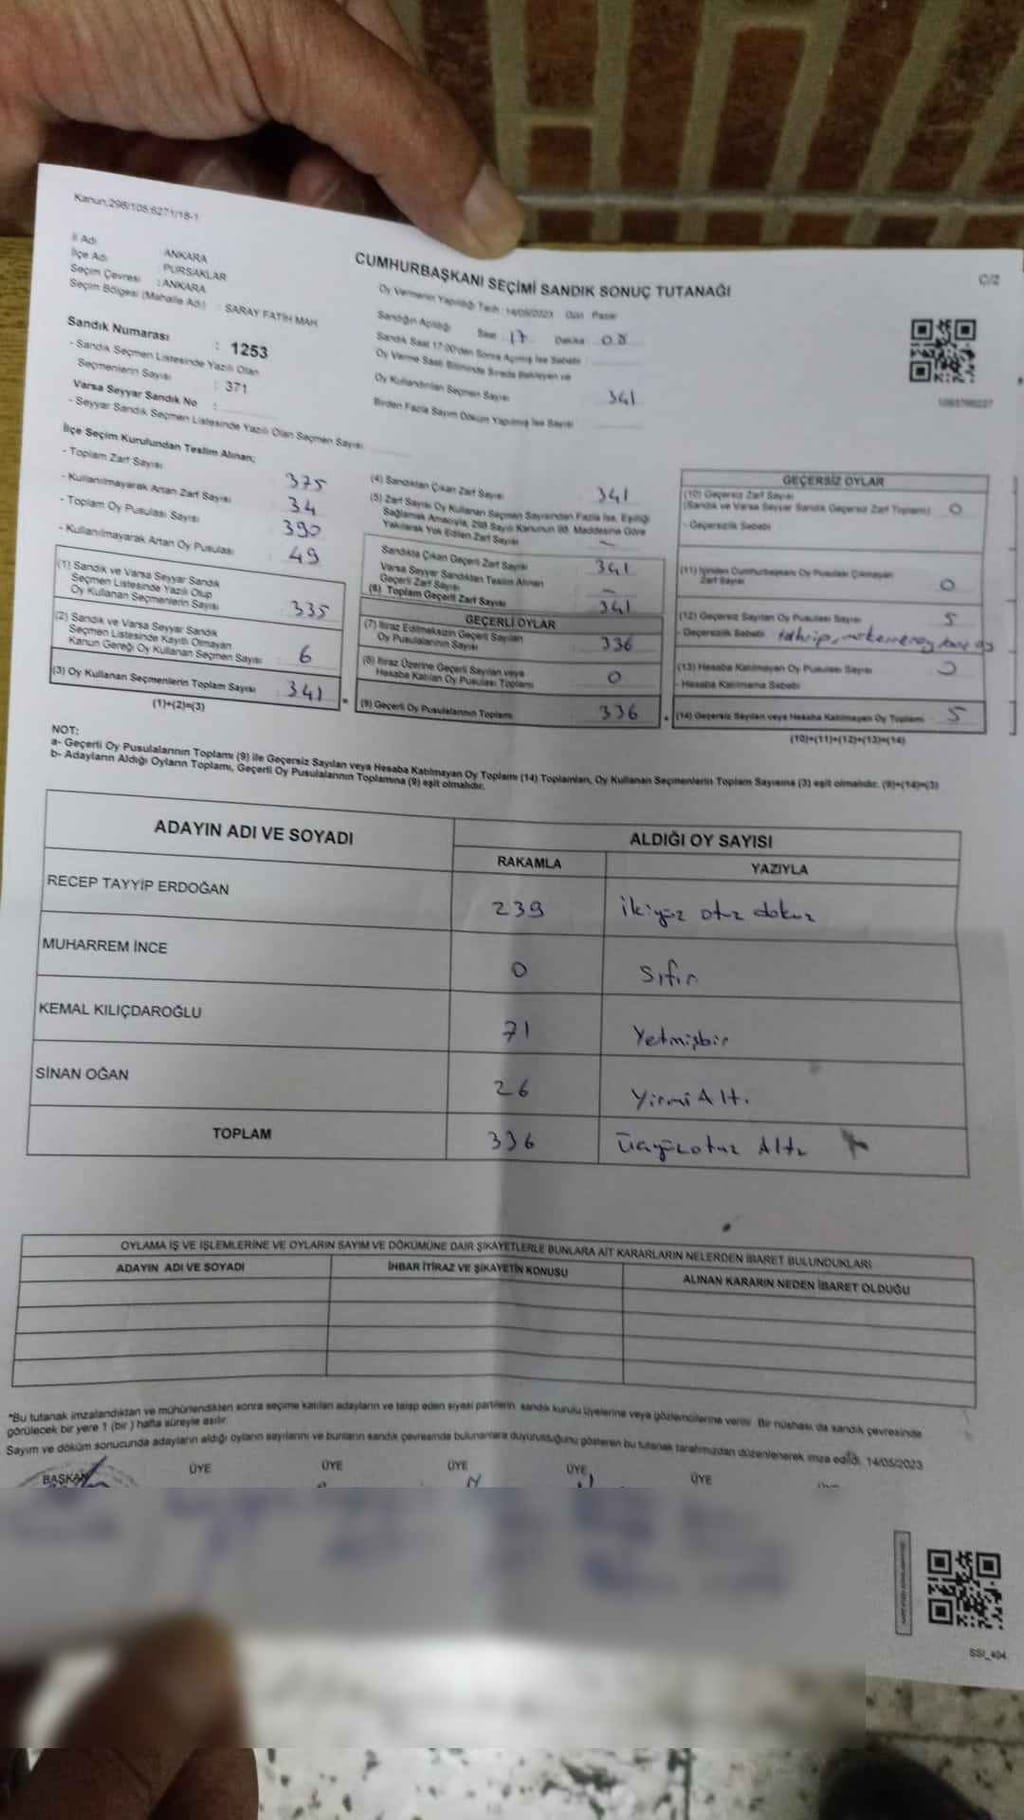 Kanun:298/105;6271/18-1
C/2
İl Adı
ANKARA
İlçe Adı
PURSAKLAR
Seçim Çevresi : ANKARA
Seçim Bölgesi (Mahalle Adı) : SARAY FATİH MAH
CUMHURBAŞKANI SEÇİMİ SANDIK SONUÇ TUTANAĞI
Oy Vermenin Yapıldığı Tarih : 14/05/2023 Gün Pazar
Sandığın Açıldığı Saat 17 Dakika 08
Sandık Saat 17:00'den Sonra Açılmış İse Sebebi
Oy Verme Saati Bitiminde Sırada Bekleyen ve
Oy Kullandırılan Seçmen Sayısı 341
Birden Fazla Sayım Döküm Yapılmış İse Sayısı
Sandık Numarası : 1253
- Sandık Seçmen Listesinde Yazılı Olan
Seçmenlerin Sayısı : 371
Varsa Seyyar Sandık No :
- Seyyar Sandık Seçmen Listesinde Yazılı Olan Seçmen Sayısı
İlçe Seçim Kurulundan Teslim Alınan;
- Toplam Zarf Sayısı 375
- Kullanılmayarak Artan Zarf Sayısı 34
- Toplam Oy Pusulası Sayısı 390
- Kullanılmayarak Artan Oy Pusulası 49
(1) Sandık ve Varsa Seyyar Sandık
Seçmen Listesinde Yazılı Olup
Oy Kullanan Seçmenlerin Sayısı 335
(2) Sandık ve Varsa Seyyar Sandık
Seçmen Listesinde Kayıtlı Olmayan
Kanun Gereği Oy Kullanan Seçmen Sayısı 6
(3) Oy Kullanan Seçmenlerin Toplam Sayısı 341
(1)+(2)=(3)
(4) Sandıktan Çıkan Zarf Sayısı 341
(5) Zarf Sayısı Oy Kullanan Seçmen Sayısından Fazla İse, Eşitliği
Sağlamak Amacıyla, 298 Sayılı Kanunun 98. Maddesine Göre
Yakılarak Yok Edilen Zarf Sayısı -
Sandıkta Çıkan Geçerli Zarf Sayısı 341
Varsa Seyyar Sandıktan Teslim Alınan
Geçerli Zarf Sayısı -
(6) Toplam Geçerli Zarf Sayısı 341
GEÇERLİ OYLAR
(7) İtiraz Edilmeksizin Geçerli Sayılan
Oy Pusulalarının Sayısı 336
(8) İtiraz Üzerine Geçerli Sayılan veya
Hesaba Katılan Oy Pusulası Toplamı 0
(9) Geçerli Oy Pusulalarının Toplamı 336
GEÇERSİZ OYLAR
(10) Geçersiz Zarf Sayısı
(Sandık ve Varsa Seyyar Sandık Geçersiz Zarf Toplamı) 0
- Geçersizlik Sebebi
(11) İçinden Cumhurbaşkanı Oy Pusulası Çıkmayan
Zarf Sayısı 0
(12) Geçersiz Sayılan Oy Pusulası Sayısı 5
- Geçersizlik Sebebi
(13) Hesaba Katılmayan Oy Pusulası Sayısı
- Hesaba Katılmama Sebebi
(14) Geçersiz Sayılan veya Hesaba Katılmayan Oy Toplamı 5
(10)+(11)+(12)+(13)=(14)
NOT:
a- Geçerli Oy Pusulalarının Toplamı (9) ile Geçersiz Sayılan veya Hesaba Katılmayan Oy Toplamı (14) Toplamları, Oy Kullanan Seçmenlerin Toplam Sayısına (3) eşit olmalıdır. (9)+(14)=(3)
b- Adayların Aldığı Oyların Toplamı, Geçerli Oy Pusulalarının Toplamına (9) eşit olmalıdır.
ADAYIN ADI VE SOYADI
ALDIĞI OY SAYISI
RAKAMLA YAZIYLA
RECEP TAYYİP ERDOĞAN 239 ikiyüz otuz dokuz
MUHARREM İNCE 0 Sıfır
KEMAL KILIÇDAROĞLU 71 Yetmişbir
SİNAN OĞAN 26 Yirmi Altı
TOPLAM 336 Üçyüzotuz Altı
OYLAMA İŞ VE İŞLEMLERİNE VE OYLARIN SAYIM VE DÖKÜMÜNE DAİR ŞİKAYETLERLE BUNLARA AİT KARARLARIN NELERDEN İBARET BULUNDUKLARI
ADAYIN ADI VE SOYADI İHBAR İTİRAZ VE ŞİKAYETİN KONUSU ALINAN KARARIN NEDEN İBARET OLDUĞU
*Bu tutanak imzalandıktan ve mühürlendikten sonra seçime katılan adayların ve talep eden siyasi partilerin sandık kurulu üyelerine veya gözlemcilerine verilir. Bir nüshası da sandık çevresinde
görülecek bir yere 1 (bir) hafta süreyle asılır.
Sayım ve döküm sonucunda adayların aldığı oyların sayılarını ve bunların sandık çevresinde bulunanlara duyurulduğunu gösteren bu tutanak tarafımızdan düzenlenerek imza edildi. 14/05/2023
BAŞKAN ÜYE ÜYE ÜYE ÜYE ÜYE
SSI_404